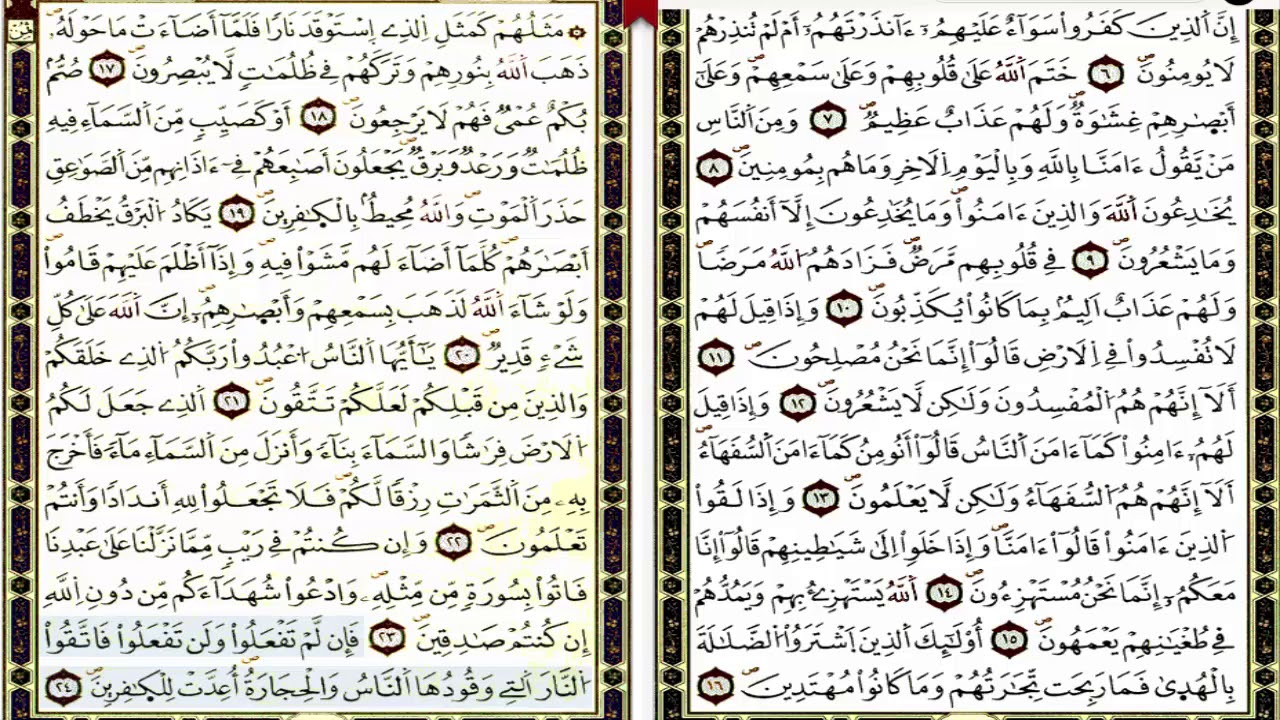 إِنَّ اَ۬لذِينَ كَفَرُواْ سَوَآءٌ عَلَيْهِمُۥٓ ءَآنذَرْتَهُمُۥٓ أَمْ لَمْ تُنذِرْهُمْ
لَا يُومِنُونَۖ ٦ خَتَمَ اَ۬للَّهُ عَلَىٰ قُلُوبِهِمْ وَعَلَىٰ سَمْعِهِمْۖ وَعَلَىٰٓ
أَبْصَٰرِهِمْ غِشَٰوَةٌۖ وَلَهُمْ عَذَابٌ عَظِيمٌۖ ٧ وَمِنَ اَ۬لنَّاسِ
مَنْ يَّقُولُ ءَامَنَّا بِاللَّهِ وَبِالْيَوْمِ اِ۬لَاخِرِ وَمَا هُم بِمُومِنِينَۖ ٨
يُخَٰدِعُونَ اَ۬للَّهَ وَالذِينَ ءَامَنُواْ وَمَا يُخَٰدِعُونَ إِلَّآ أَنفُسَهُمْ
وَمَا يَشْعُرُونَۖ ٩ فِے قُلُوبِهِم مَّرَضٌۖ فَزَادَهُمُ اُ۬للَّهُ مَرَضاًۖ
وَلَهُمْ عَذَابٌ اَلِيمُۢ بِمَا كَانُواْ يُكَذِّبُونَۖ ١٠ وَإِذَا قِيلَ لَهُمْ
لَا تُفْسِدُواْ فِے اِ۬لَارْضِ قَالُوٓاْ إِنَّمَا نَحْنُ مُصْلِحُونَۖ ١١
أَلَآ إِنَّهُمْ هُمُ اُ۬لْمُفْسِدُونَ وَلَٰكِن لَّا يَشْعُرُونَۖ ١٢ وَإِذَا قِيلَ
لَهُمُۥٓ ءَامِنُواْ كَمَآ ءَامَنَ اَ۬لنَّاسُ قَالُوٓاْ أَنُومِنُ كَمَآ ءَامَنَ اَ۬لسُّفَهَآءُۖ
أَلَآ إِنَّهُمْ هُمُ اُ۬لسُّفَهَآءُ وَلَٰكِن لَّا يَعْلَمُونَۖ ١٣ وَإِذَا لَقُواْ
اُ۬لذِينَ ءَامَنُواْ قَالُوٓاْ ءَامَنَّاۖ وَإِذَا خَلَوِاْ اِلَىٰ شَيَٰطِينِهِمْ قَالُوٓاْ إِنَّا
مَعَكُمُۥٓ إِنَّمَا نَحْنُ مُسْتَهْزِءُونَۖ ١٤ اَ۬للَّهُ يَسْتَهْزِۓُ بِهِمْ وَيَمُدُّهُمْ
فِے طُغْيَٰنِهِمْ يَعْمَهُونَۖ ١٥ أُوْلَٰٓئِكَ اَ۬لذِينَ اَ۪شْتَرَوُاْ اُ۬لضَّلَٰلَةَ
بِالْهُدَىٰ فَمَا رَبِحَت تِّجَٰرَتُهُمْ وَمَا كَانُواْ مُهْتَدِينَۖ ١٦
ثمن
مَثَلُهُمْ كَمَثَلِ اِ۬لذِے اِ۪سْتَوْقَدَ نَاراً فَلَمَّآ أَضَآءَتْ مَا حَوْلَهُۥ
ذَهَبَ اَ۬للَّهُ بِنُورِهِمْ وَتَرَكَهُمْ فِے ظُلُمَٰتٍ لَّا يُبْصِرُونَۖ ١٧ صُمُّۢ
بُكْمٌ عُمْيٌ فَهُمْ لَا يَرْجِعُونَۖ ١٨ أَوْ كَصَيِّبٍ مِّنَ اَ۬لسَّمَآءِ فِيهِ
ظُلُمَٰتٌ وَرَعْدٌ وَبَرْقٌۖ يَجْعَلُونَ أَصَٰبِعَهُمْ فِےٓ ءَاذَانِهِم مِّنَ اَ۬لصَّوَٰعِقِ
حَذَرَ اَ۬لْمَوْتِۖ وَاللَّهُ مُحِيطُۢ بِالْكَٰفِرِينَۖ ١٩ يَكَادُ اُ۬لْبَرْقُ يَخْطَفُ
أَبْصَٰرَهُمْۖ كُلَّمَآ أَضَآءَ لَهُم مَّشَوْاْ فِيهِۖ وَإِذَآ أَظْلَمَ عَلَيْهِمْ قَامُواْۖ
وَلَوْ شَآءَ اَ۬للَّهُ لَذَهَبَ بِسَمْعِهِمْ وَأَبْصَٰرِهِمُۥٓۖ إِنَّ اَ۬للَّهَ عَلَىٰ كُلِّ
شَےْءٍ قَدِيرٌۖ ٢٠ يَٰٓأَيُّهَا اَ۬لنَّاسُ اُ۟عْبُدُواْ رَبَّكُمُ اُ۬لذِے خَلَقَكُمْ
وَالذِينَ مِن قَبْلِكُمْ لَعَلَّكُمْ تَتَّقُونَۖ ٢١ اَ۬لذِے جَعَلَ لَكُمُ
اُ۬لَارْضَ فِرَٰشاً وَالسَّمَآءَ بِنَآءً وَأَنزَلَ مِنَ اَ۬لسَّمَآءِ مَآءً فَأَخْرَجَ
بِهِۦ مِنَ اَ۬لثَّمَرَٰتِ رِزْقاً لَّكُمْۖ فَلَا تَجْعَلُواْ لِلهِ أَندَاداً وَأَنتُمْ
تَعْلَمُونَۖ ٢٢ وَإِن كُنتُمْ فِے رَيْبٍ مِّمَّا نَزَّلْنَا عَلَىٰ عَبْدِنَا
فَاتُواْ بِسُورَةٍ مِّن مِّثْلِهِۦۖ وَادْعُواْ شُهَدَآءَكُم مِّن دُونِ اِ۬للَّهِ
إِن كُنتُمْ صَٰدِقِينَۖ ٢٣ فَإِن لَّمْ تَفْعَلُواْ وَلَن تَفْعَلُواْ فَاتَّقُواْ
اُ۬لنَّارَ اَ۬لتِے وَقُودُهَا اَ۬لنَّاسُ وَالْحِجَارَةُۖ أُعِدَّتْ لِلْكَٰفِرِينَۖ ٢٤